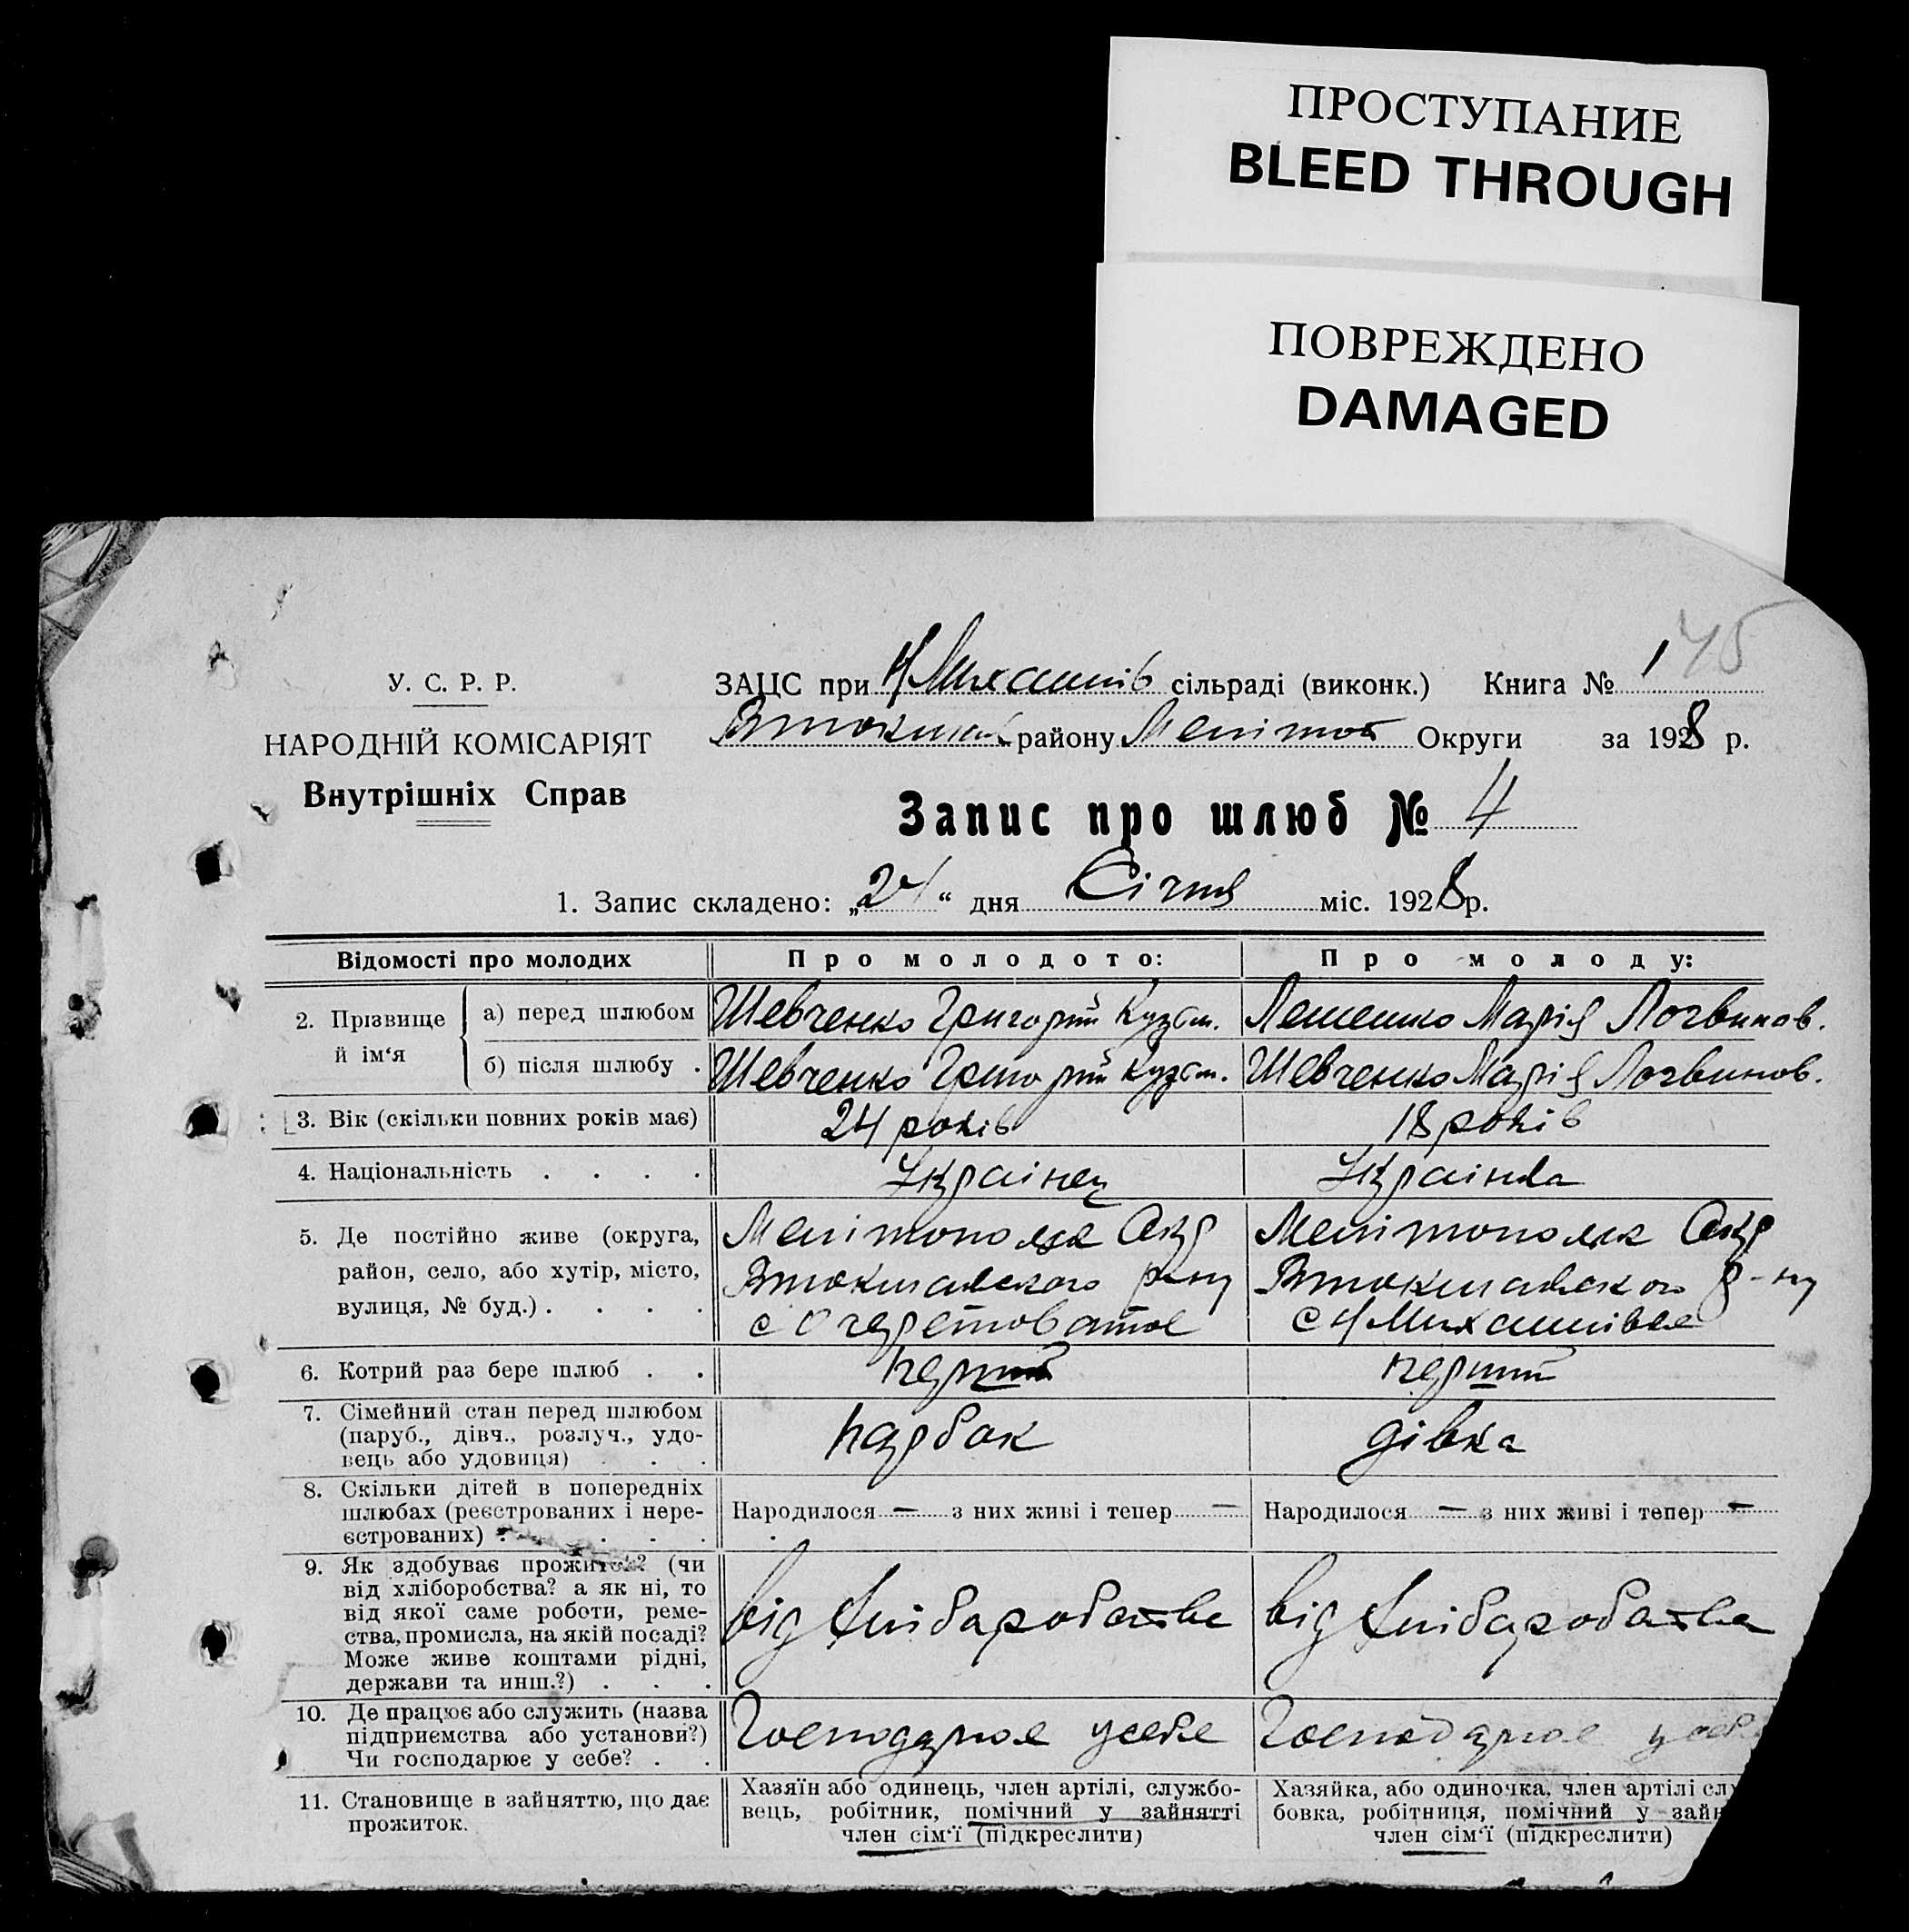 ПРОСТУПАНИЕ
BLEED THROUGH
ПОВРЕЖДЕНО
DAMAGED
У. С. Р. Р.
НАРОДНІЙ КОМІСАРІЯТ
Внутрішніх Справ
ЗАЦС при Н Михайлів сільраді (виконк.) Книга № 1 45
району Мелітоп Округи за 1928 р.
Запис про шлюб № 4
1. Запис складено: „24“ дня Січня міс. 1928 р.
Відомості про молодих Про молодого: Про молоду:
2. Прізвище й ім‘я
а) перед шлюбом Шевченко Григорій Кузьм. Марія Логвинов.
б) після шлюбу . Шевченко Григорій Кузьм. Шевченко Марія Логвинов.
3. Вік (скільки повних років має) 24 років 18 років
4. Національність . . . . Українец Українка
5. Де постійно живе (округа,
район, село, або хутір, місто,
вулиця, № буд.) . . . .
Мелітопольск Окр
р-ну
с Очеретоватое
Мелітопольск Окр
р-ну
с Н Михайлівка
6. Котрий раз бере шлюб . . перший перший
7. Сімейний стан перед шлюбом
(паруб., дівч., розлуч., удо-
вець або удовиця) . . .
парбок дівка
8. Скільки дітей в попередніх
шлюбах (реєстрованих і нере-
єстрованих) . . . . .
Народилося — з них живі і тепер — Народилося — з них живі і тепер —
9. Як здобуває прожиток? (чи
від хліборобства? а як ні, то
від якої саме роботи, реме-
ства, промисла, на якій посаді?
Може живе коштами рідні,
держави та инш.?) . . .
від хлібаробства від хлібаробства
10. Де працює або служить (назва
підприємства або установи?)
Чи господарює у себе? . .
Господарює у себе Господарює у себе
11. Становище в зайняттю, що дає
прожиток.
Хазяїн або одинець, член артілі, службо-
вець, робітник, помічний у зайнятті
член сім‘ї (підкреслити)
Хазяйка, або одиночка, член артілі слу
бовка, робітниця, помічний у зайн
член сім‘ї (підкреслити)